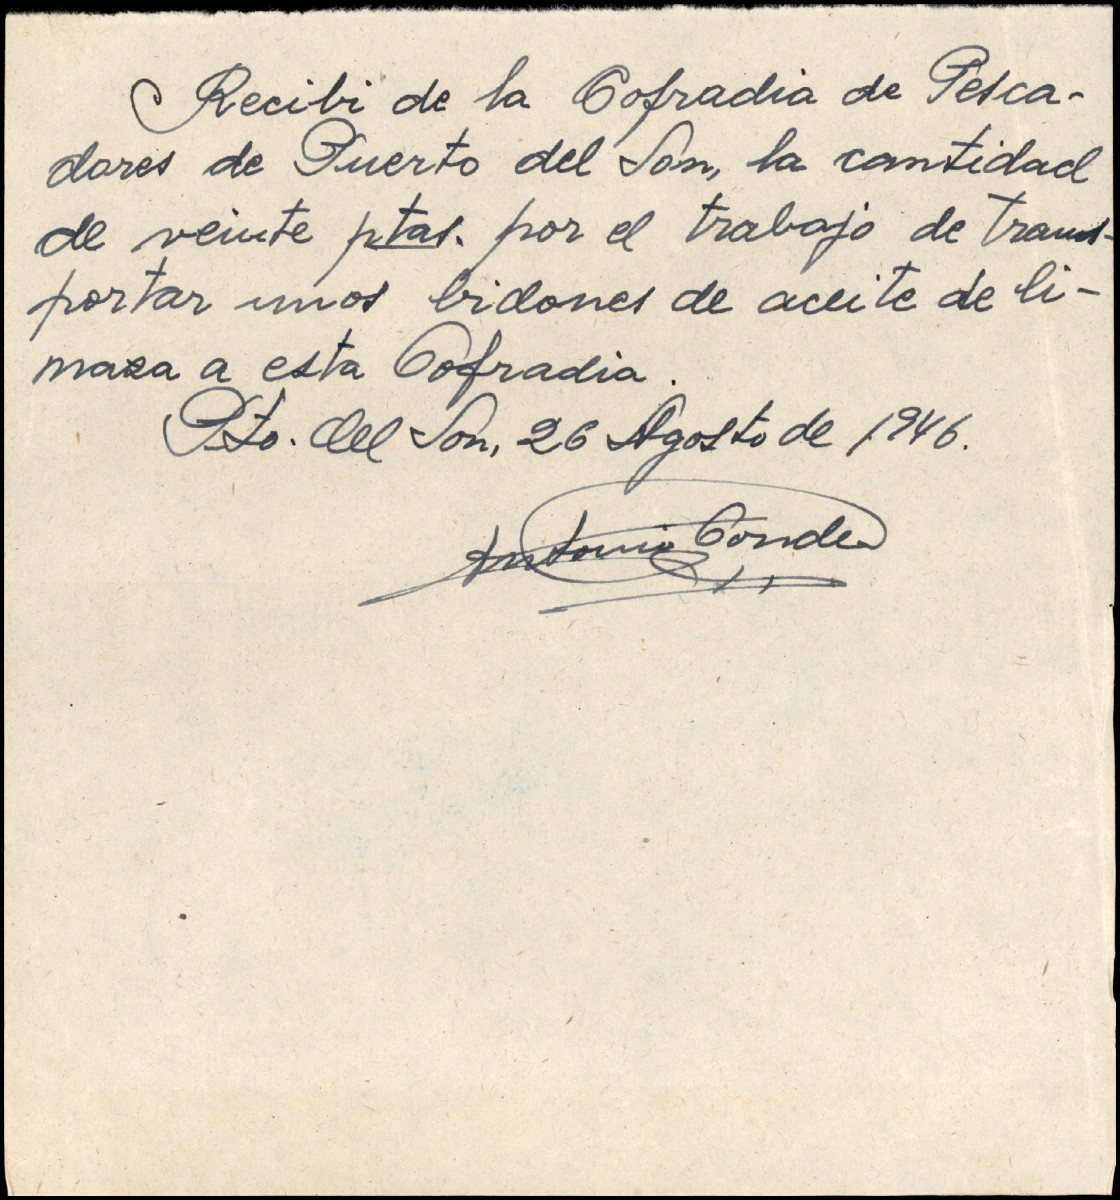 Recibi de la Cofradia de Pesca-
dores de Puerto del Son, la cantidad
de veinte ptas. por el trabajo de trans-
portar unos bidones de aceite de li-
maza a esta Cofradia.
Pto. del Son, 26 Agosto de 1946.
Antonio Conde